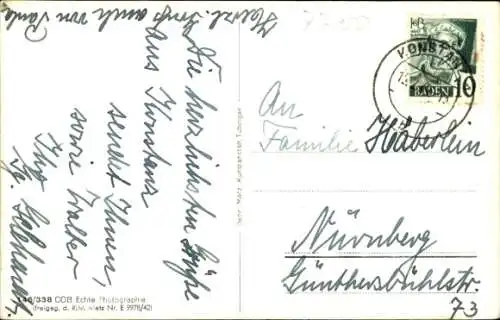 Herzl. Grüße auch von Paula
Die herzlichsten Grüße
aus Konstanz
sendet Ihnen,
sowie Walter
Ihre
146/338 ODB Echte Photographie
(Freigeg. d. RLM. Metz Nr. E 9978/42)
Gebr. Metz, Kunstanstalt, Tübingen
KONSTANZ
BADEN
10
An
Familie Häberlein
Nürnberg
Günthersbühlstr.
73